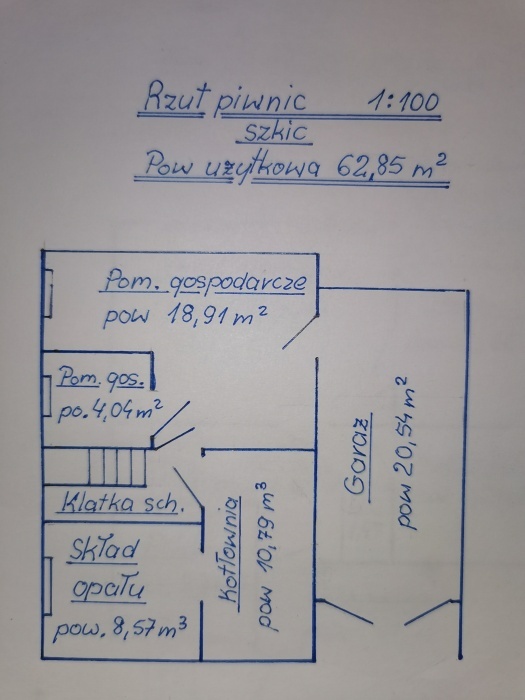 Rzut piwnic 1:100
szkic
Pow użytkowa 62,85 m²
Pom. gospodarcze
pow 18,91 m²
Pom. gos.
po. 4,04 m²
Klatka sch.
Skład
opału
pow. 8,57 m³
Kotłownia
pow 10,79 m³
Garaż
pow 20,54 m²